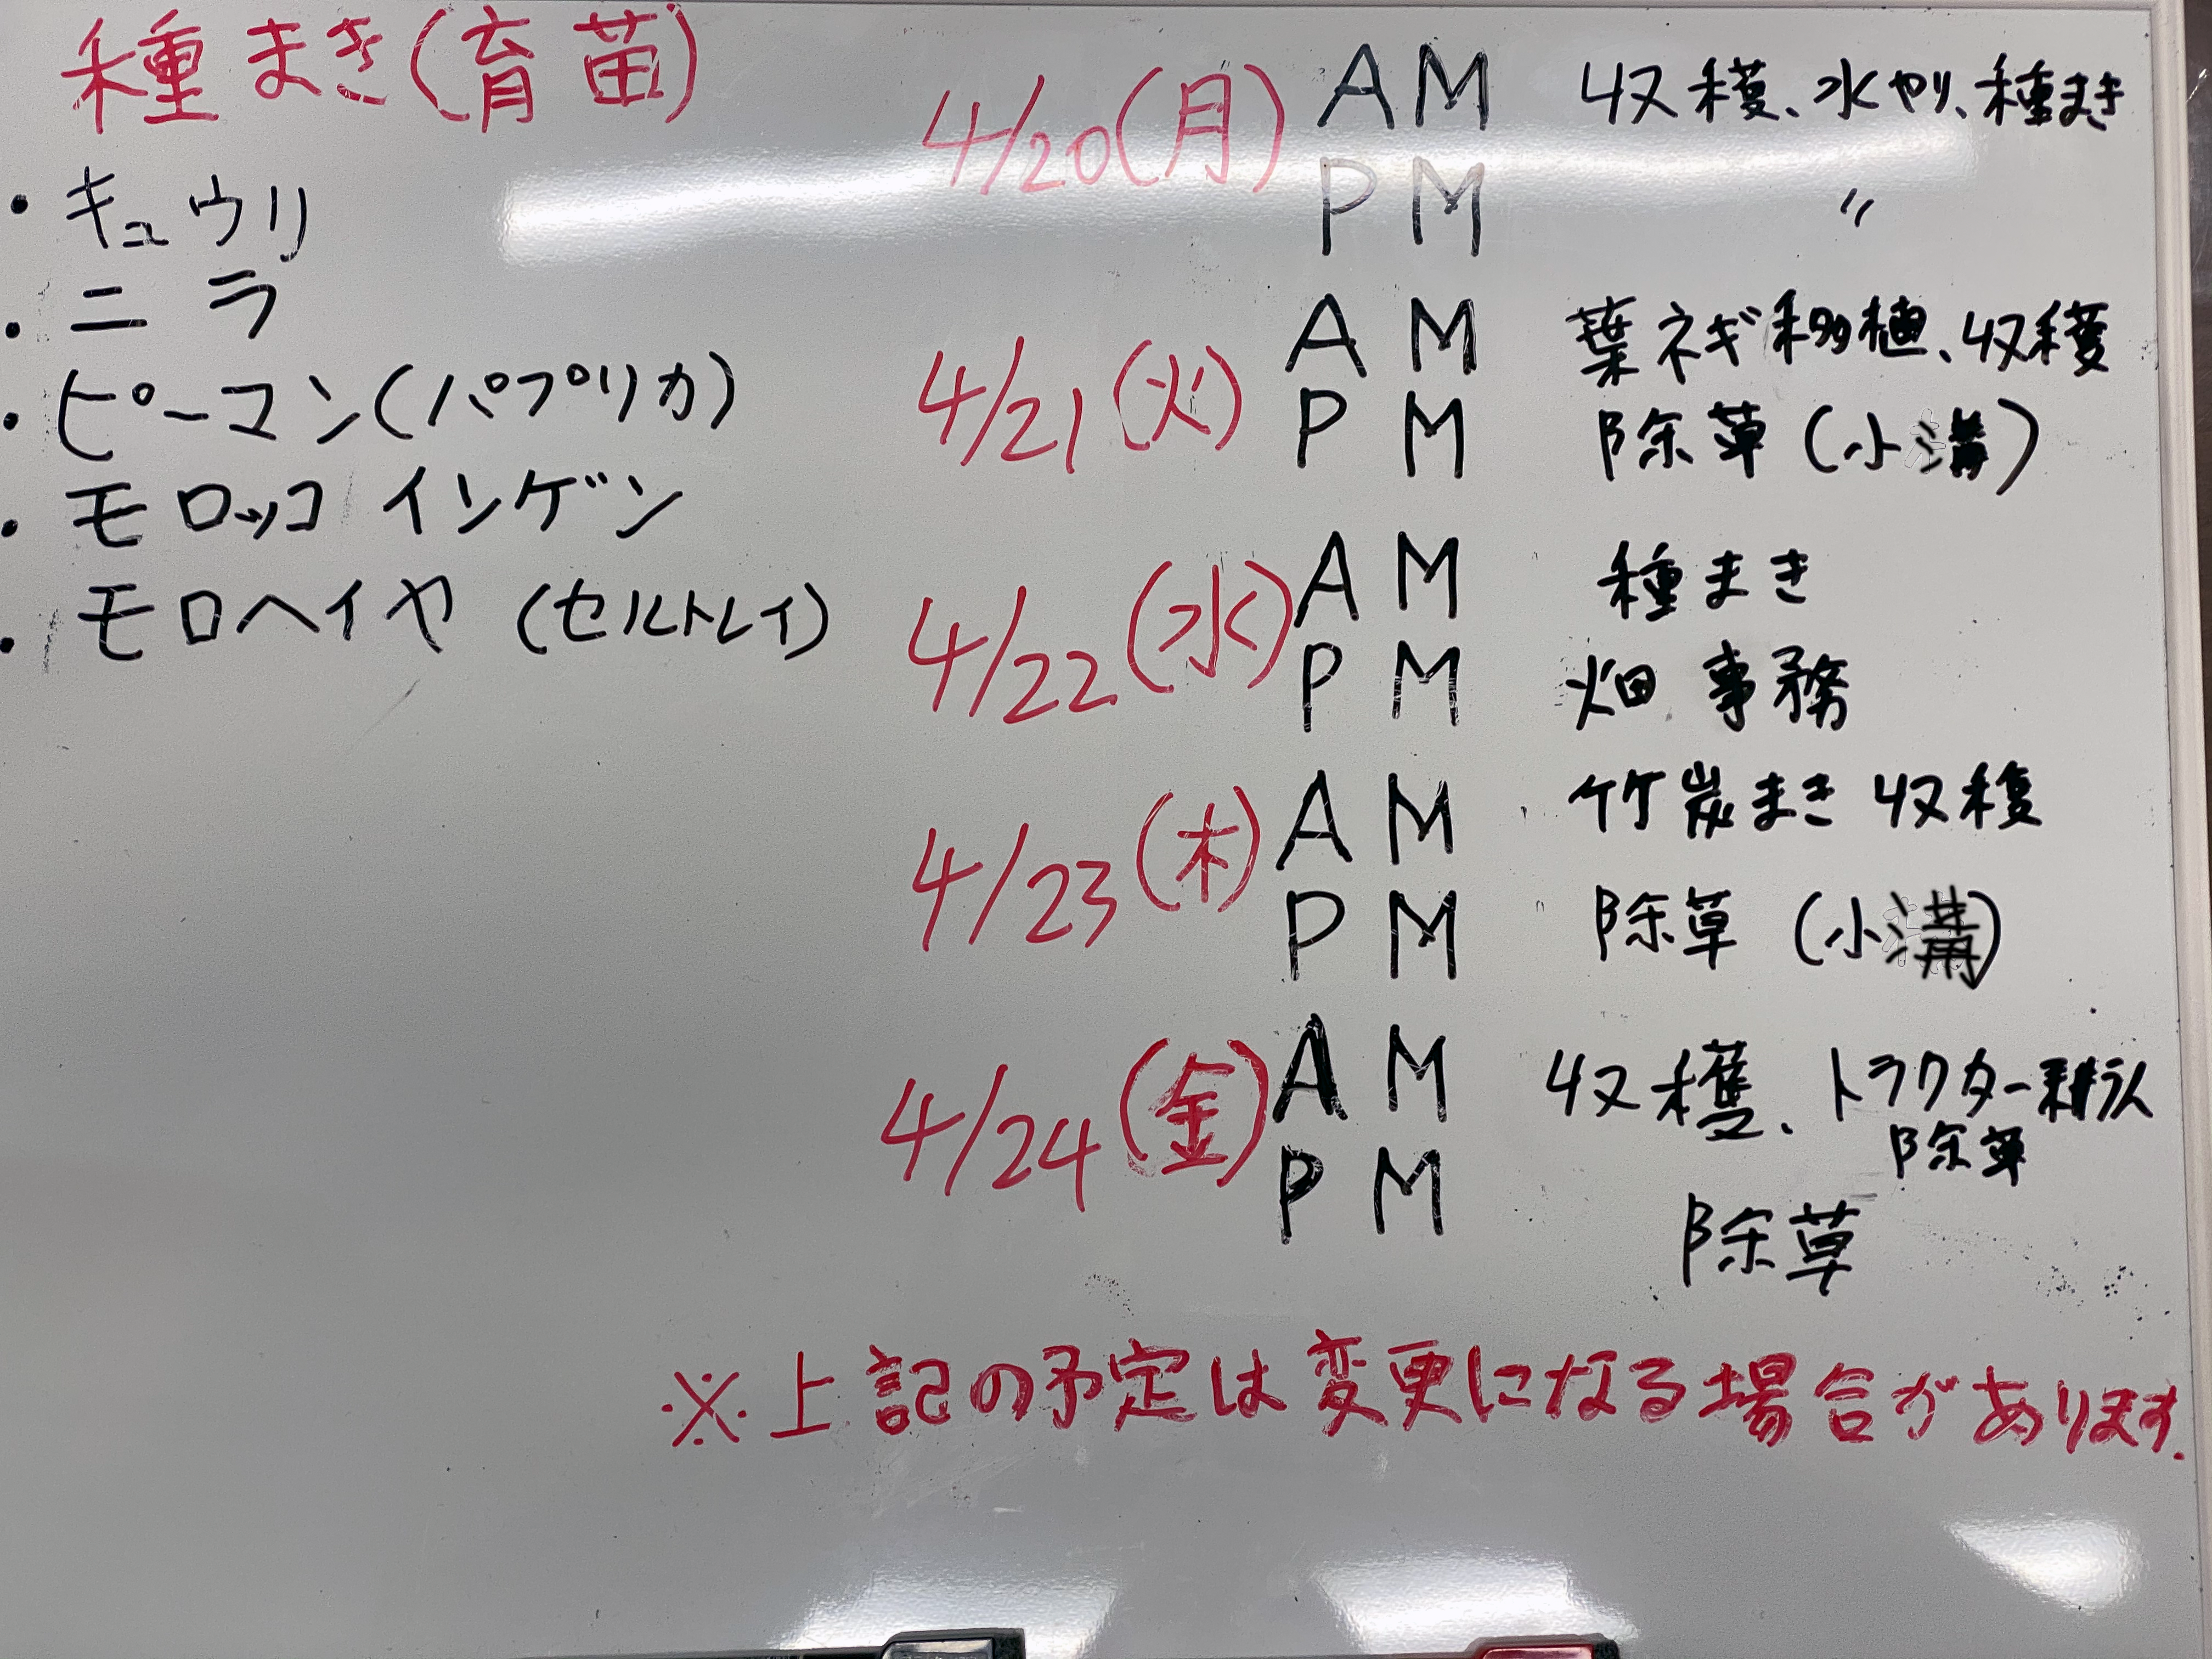 種まき(育苗)
・キュウリ
・ニラ
・ピーマン(パプリカ)
・モロッコインゲン
・モロヘイヤ(セルトレイ)
4/20(月) AM 収穫、水やり、種まき
PM 〃
4/21(火) AM 葉ネギ移植、収穫
PM 除草(小溝)
4/22(水) AM 種まき
PM 畑事務
4/23(木) AM 竹炭まき 収穫
PM 除草(小溝)
4/24(金) AM 収穫、トラクター耕うん
除草
PM 除草
※上記の予定は変更になる場合があります.